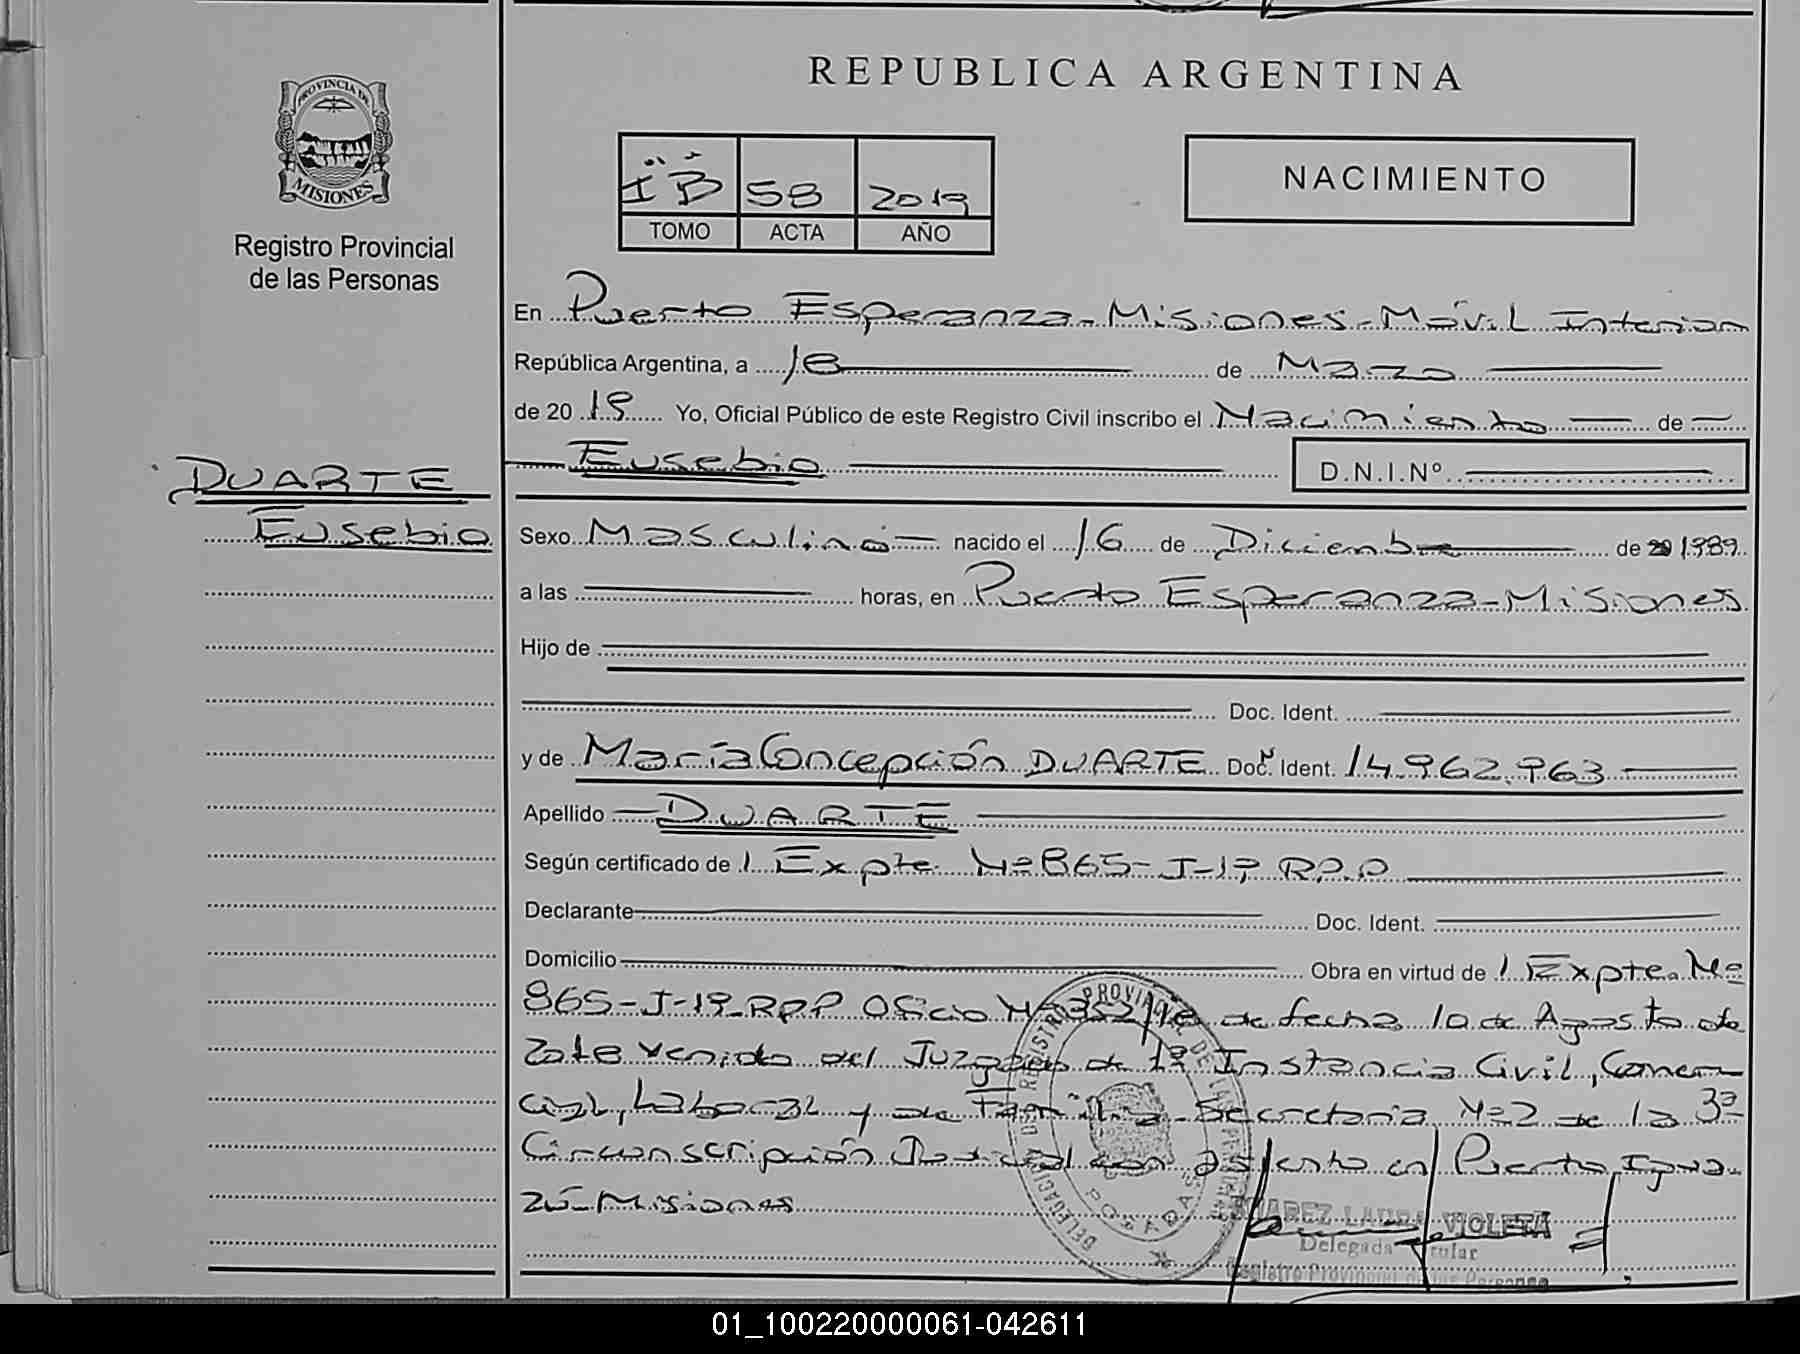 REPUBLICA ARGENTINA
PROVINCIA DE
MISIONES
Registro Provincial
de las Personas
TOMO
58 ACTA
2019 AÑO
NACIMIENTO
En Puerto Esperanza - Misiones - Móvil Interior
República Argentina, a 18 de Marzo
de 2019 Yo, Oficial Público de este Registro Civil inscribo el Nacimiento de
Eusebio D.N.I.Nº
DUARTE
Eusebio
Sexo Masculino nacido el 16 de Diciembre de 1989
a las horas, en Puerto Esperanza - Misiones
Hijo de
Doc. Ident.
y de María Concepción DUARTE Doc. Ident. 14.962.963
Apellido DUARTE
Según certificado de Expte Nº 865-J-19 RPP
Declarante Doc. Ident.
Domicilio Obra en virtud de Expte. Nº
865-J-19-RPP Oficio Nº de fecha 10 de Agosto de
2018 venido del Juzgado de 1ª Instancia Civil, Comer
cial, Laboral y de Familia - Secretaria Nº 2 de la 3ª
Circunscripción Judicial con asiento en Puerto Igua
zú - Misiones
DELEGACION DEL REGISTRO PROVINCIAL DE LAS PERSONAS
POSADAS
SUAREZ LAURA VIOLETA
Delegada Titular
Registro Provincial de las Personas
01_100220000061-042611